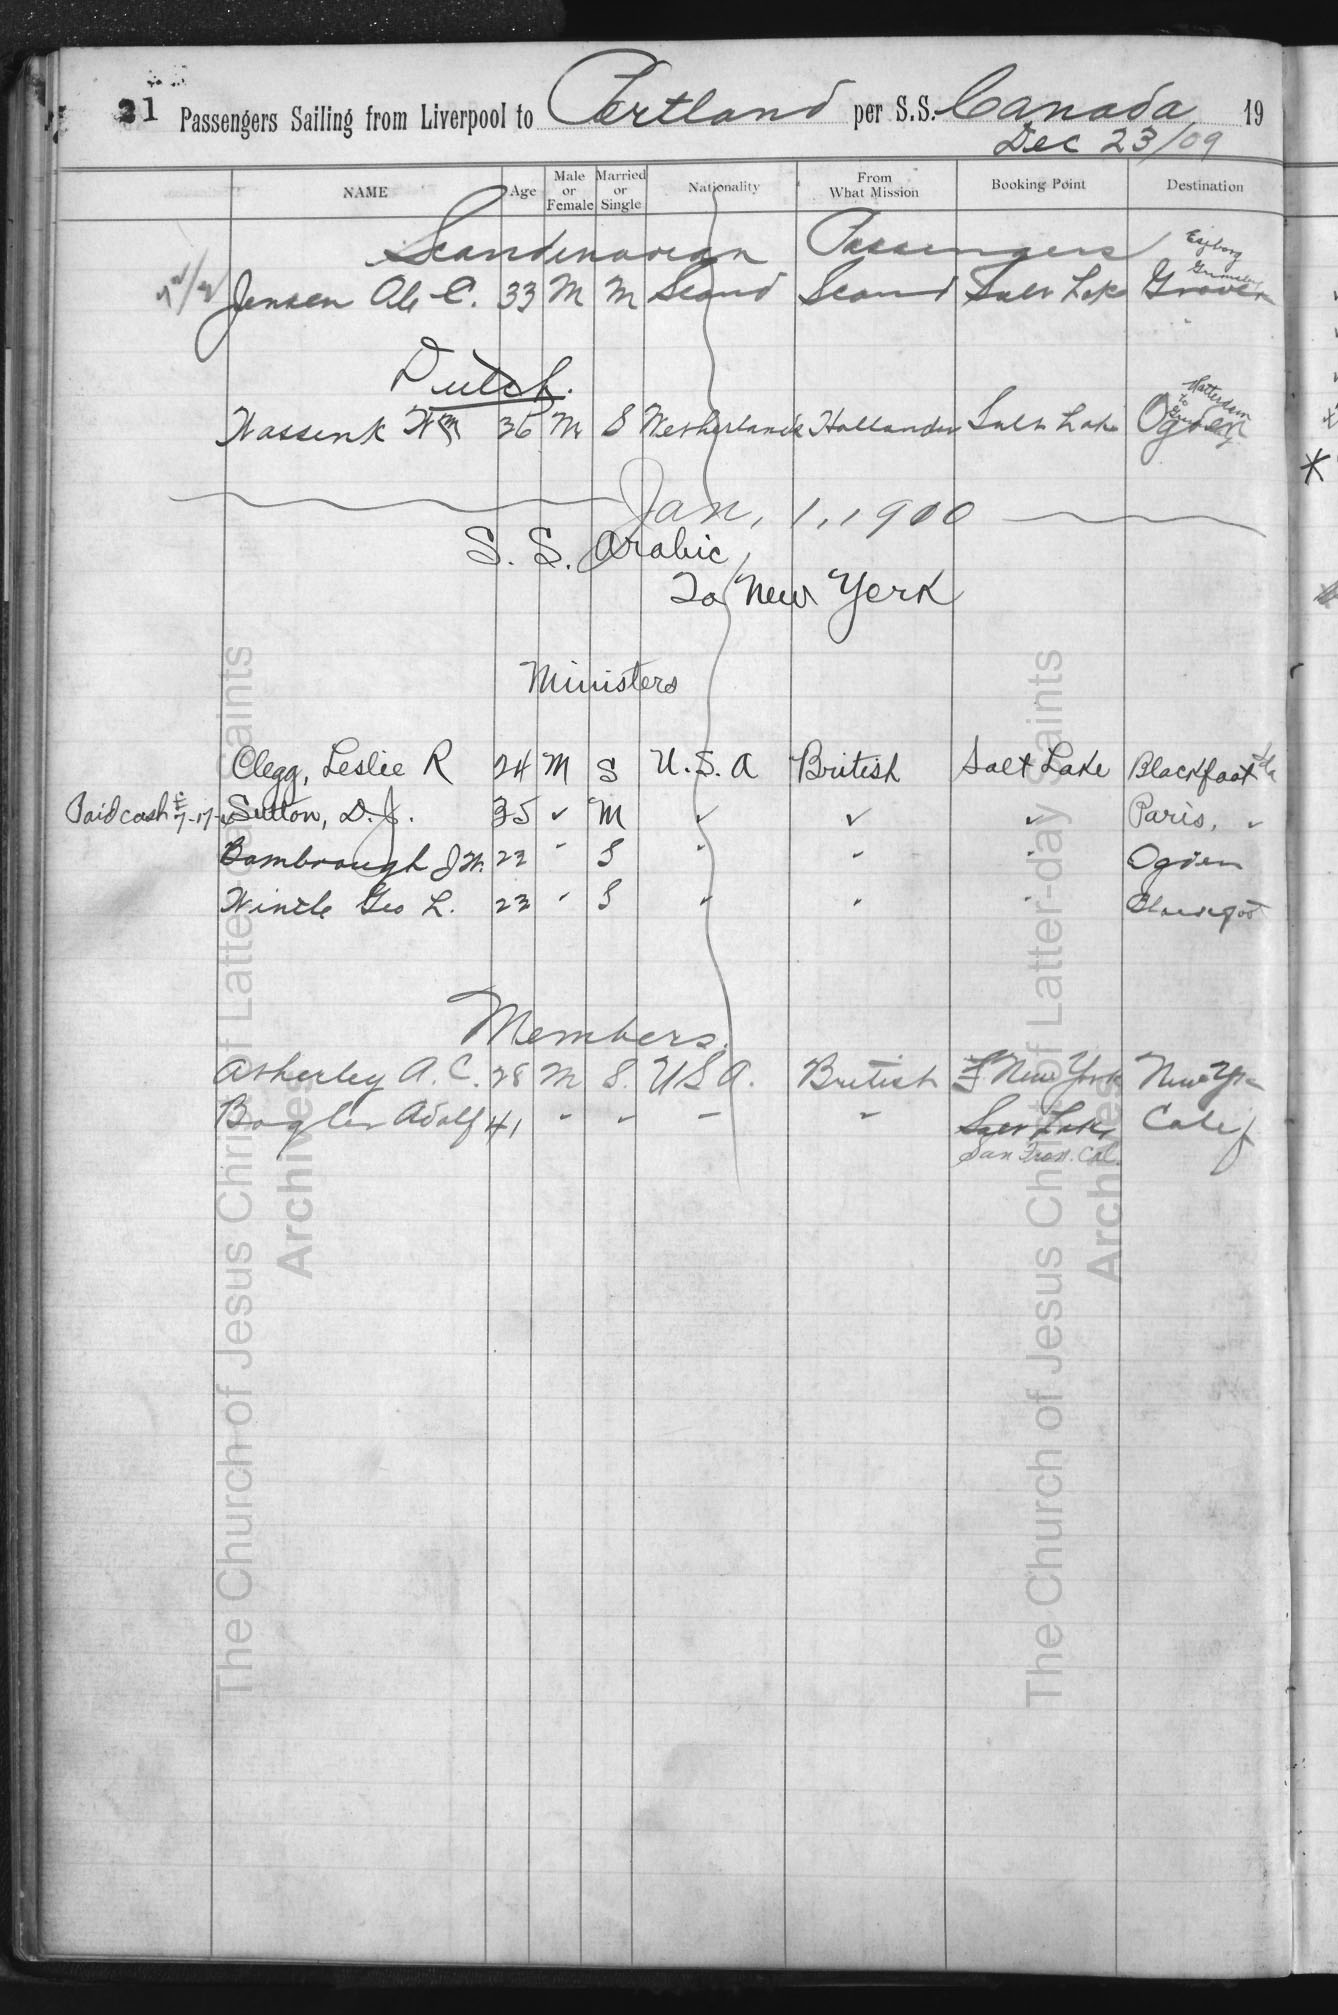 21 Passengers Sailing from Liverpool to Portland per S.S. Canada 19
Dec 23/09
NAME Age Male or Female Married or Single Nationality From What Mission Booking Point Destination
Scandinavian Passengers
Jensen C. 33 M M Scand Scand Salt Lake Grover
Dutch.
Wassink Wm 36 M S Netherlands Hollander Salt Lake Ogden
Jan, 1, 1900
S. S. Arabic
To New York
Ministers
Clegg, Leslie R 24 M S U.S.A British Salt Lake Blackfoot Ida
Paid cash £7-17- Sutton, D.J. 35 ✓ M ✓ ✓ ✓ Paris, ✓
Bambrough J W. 22 " S " " " Ogden
Wintle Geo L. 23 " S " " " Blackfoot
Members.
Atherley A. C. 28 M S. U S A. British New York New York
Bogler Adolf 41 " " " " Salt Lake Calif
San Fran. Cal.
The Church of Jesus Christ of Latter-day Saints
Archives
The Church of Jesus Christ of Latter-day Saints
Archives